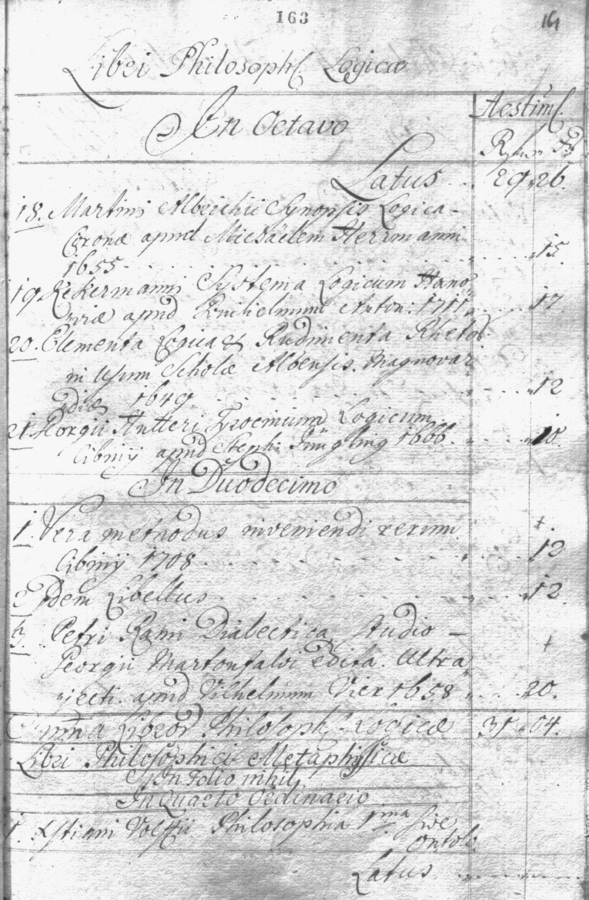 163
Libri Philosoph. Logicæ
Aestim.
In Octavo
Latus . . 29. 26.
18. Martini Albrichii Synopsis Logica
Coronæ apud Michaelem Hermanni
1655 . . . 15
19. Kekermanni Systema Logicum Hano-
viæ apud Guilielmum Anton: 1711 . . 17
20. Elementa Logicæ Rudimenta Rhetor
in Usum Scholæ Albensis. Magnovar
adiæ 1649 . . . 12
21. Georgii Hutteri Tyrocinium Logicum
Cibinij apud Steph: Jüngling 1666. . . 10
In Duodecimo
1. Vera methodus inveniendi verum
Cibinij 1708 . . . 12
2. Idem Libellus . . . 12.
3. Petri Rami Dialectica Studio
Georgii Martonfalvi edita. Ultra
jecti. apud Vilhelmum Vier 1658 . . 20.
Summa Libror Philosoph. Logicæ 31. 04.
Libri Philosophici Metaphysicæ
In Folio nihil
In Quarto Ordinario
1. Xstiani Volfii Philosophia 1ma sive
Ontolo
Latus . . .